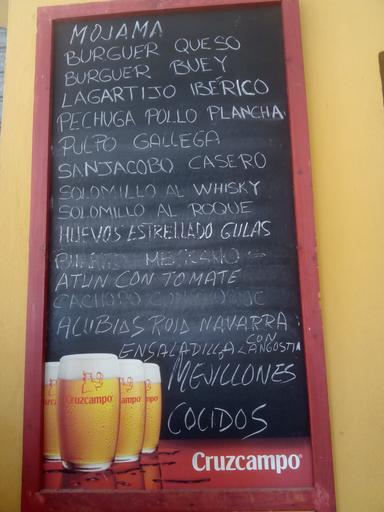 MOJAMA
BURGUER QUESO
BURGUER BUEY
LAGARTIJO IBÉRICO
PECHUGA POLLO PLANCHA
PULPO GALLEGA
SANJACOBO CASERO
SOLOMILLO AL WHISKY
SOLOMILLO AL ROQUE
HUEVOS ESTRELLADO GULAS
MEXICANO
ATUN CON TOMATE
CACHOPO
ALUBIAS ROJA NAVARRA
ENSALADILLA CON LANGOSTIN
MEJILLONES
COCIDOS
Cruzcampo
Cruzcampo